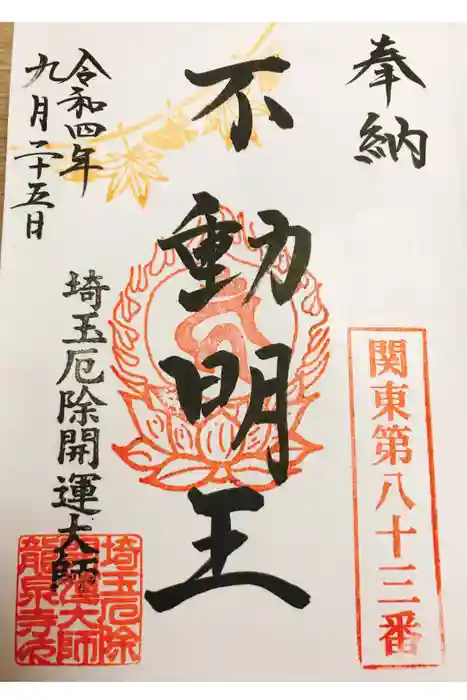 奉納
関東第八十三番
不動明王
令和四年
九月二十五日
埼玉厄除開運大師
埼玉厄除
開運大師
龍泉寺印